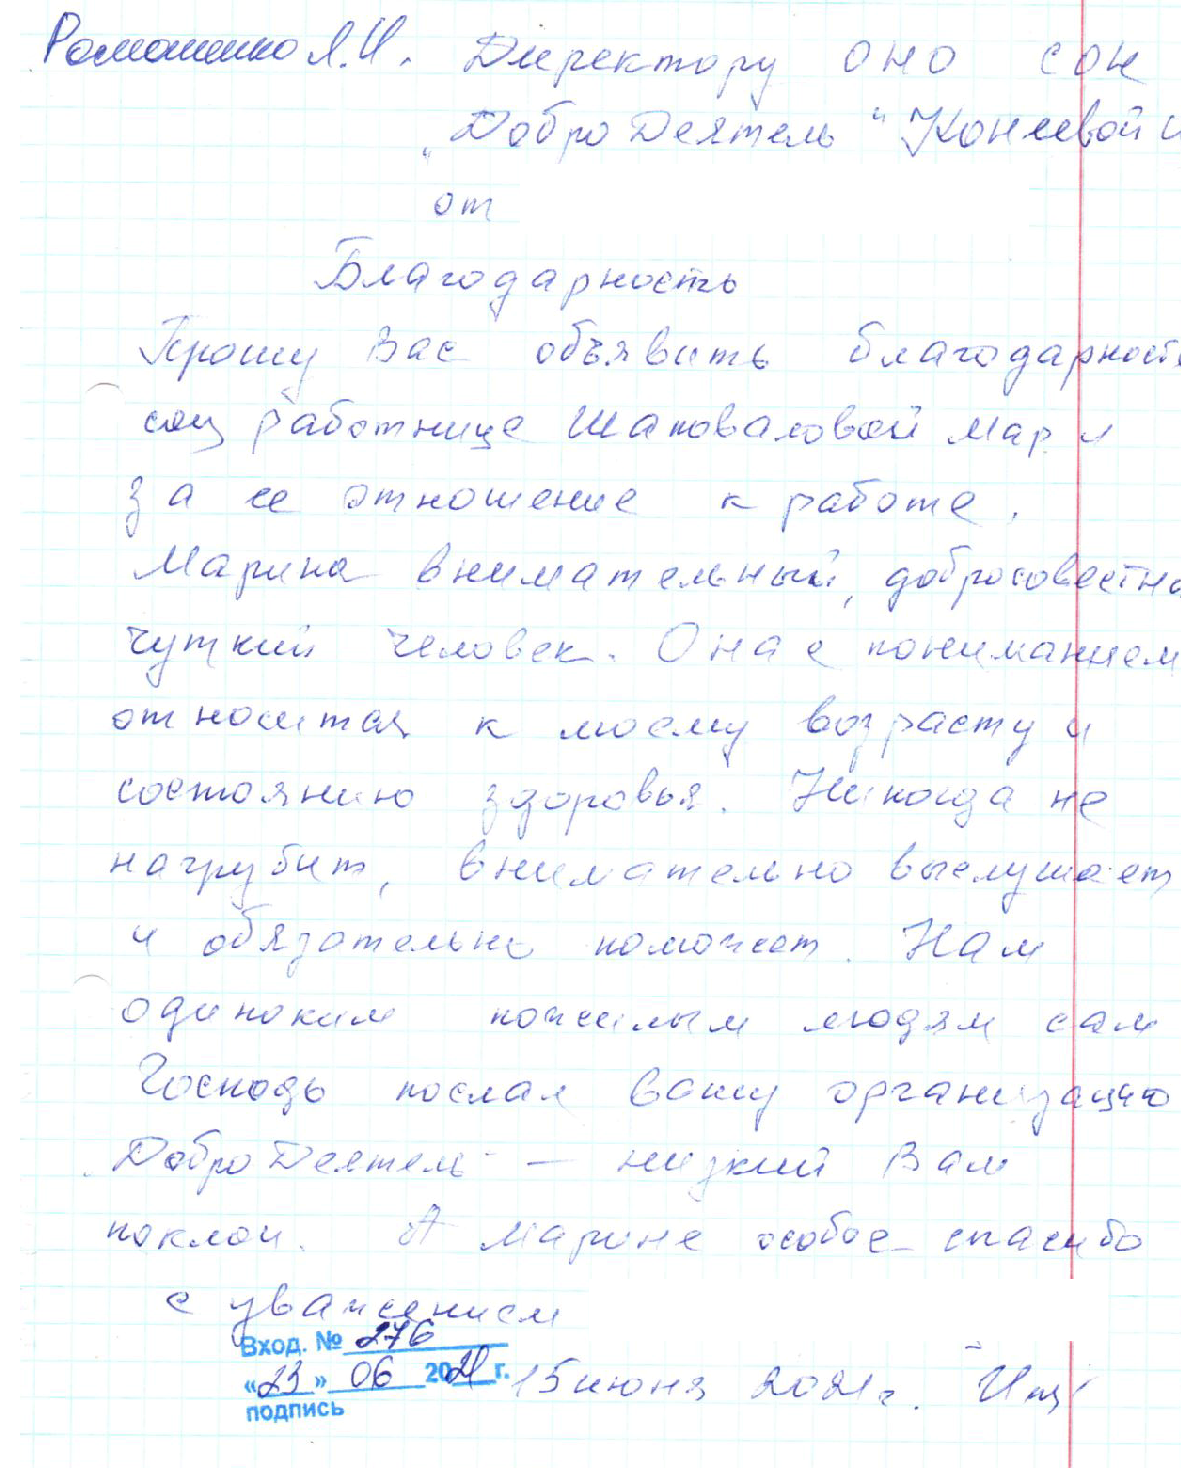 Ромашенко Я.И. Директору ОНО СОН
"ДоброДеятель" Конеевой И
от
Благодарность
Прошу Вас объявить благодарность
соц работнице Шаповаловой Мари
за ее отношение к работе.
Марина внимательный, добросовестны
чуткий человек. Она с пониманием
относится к моему возрасту и
состоянию здоровья. Никогда не
нагрубит, внимательно выслушает
и обязательно поможет. Нам
одиноким пожилым людям сам
Господь послал вашу организацию
"ДоброДеятель" — низкий Вам
поклон. А Марине особое спасибо
с уважением
Вход. № 276
«23» 06 2021 г. 15 июня 2021 г.
подпись